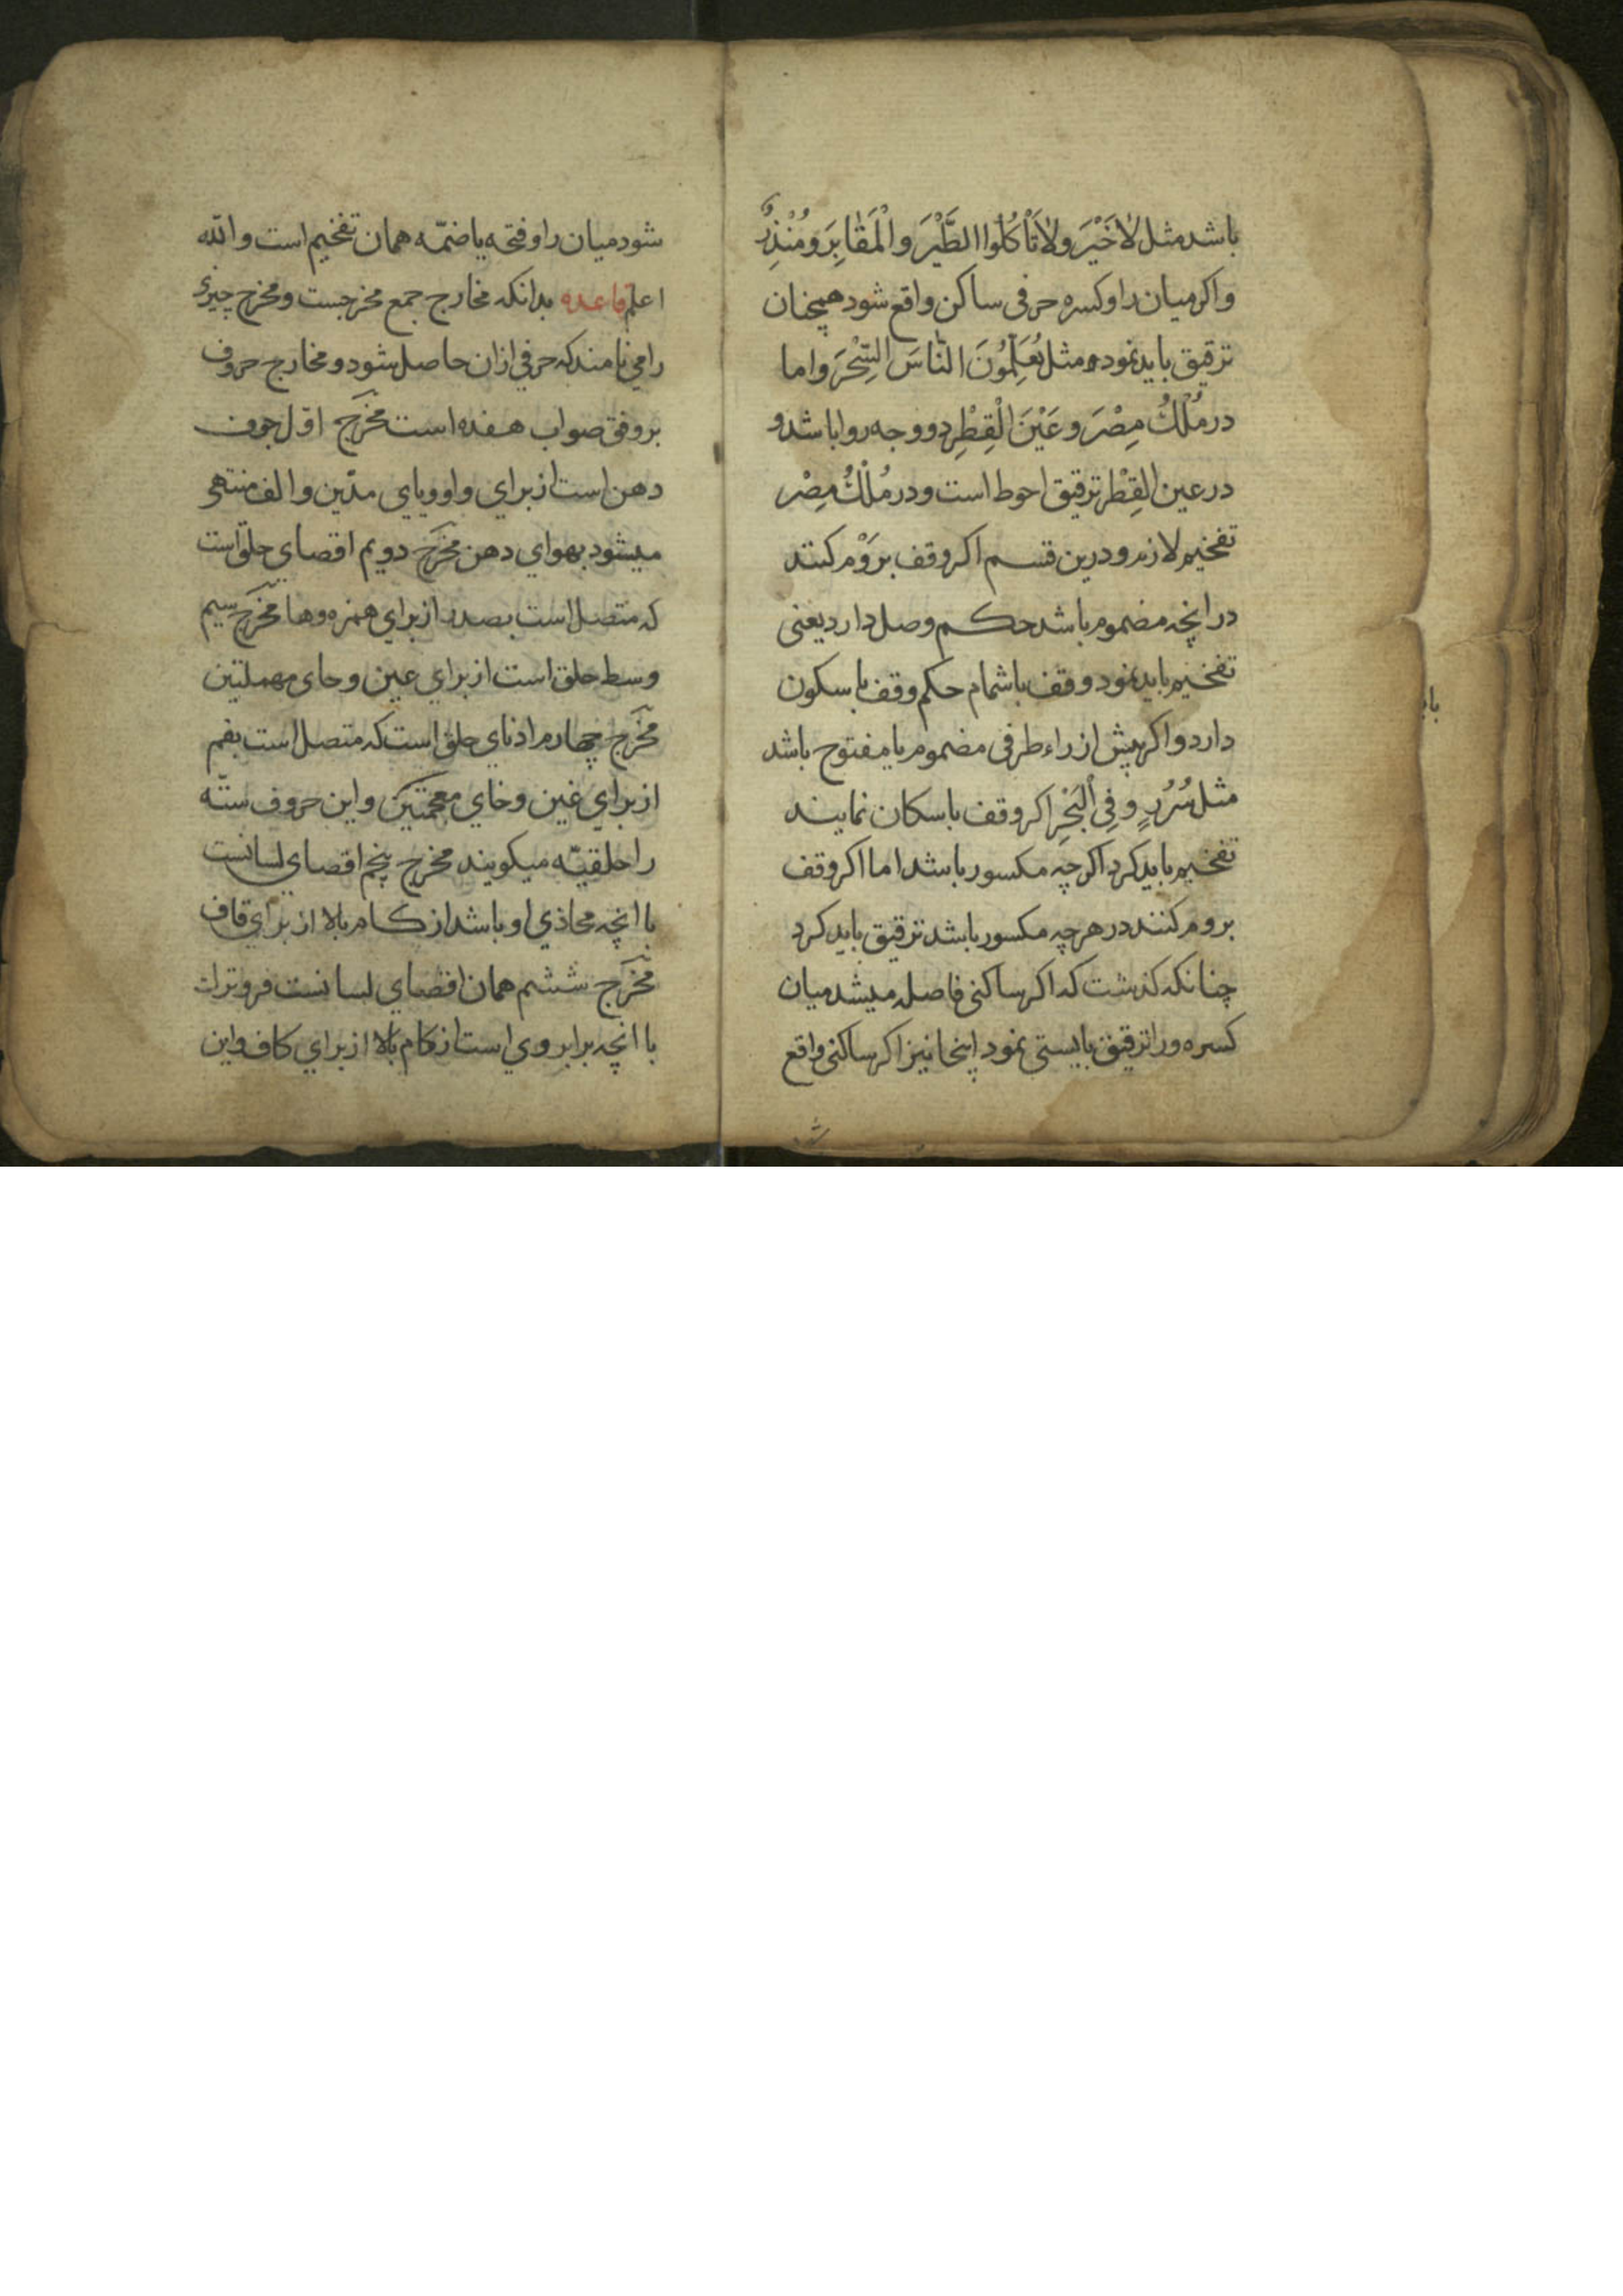 باشد مثل لَاخَيْرَ ولَا تَأْكُلُوا الطَّيْرَ والْمَقَابِرَ ومُنْذِرٌ
واکر میان را وکسره حرفی ساکن واقع شود همچنان
ترقیق باید نمود مثل يُعَلِّمُونَ النَّاسَ السِّحْرَ واما
در مُلْكُ مِصْرَ وعَيْنَ الْقِطْرِ دو وجه روا باشد و
در عین القِطْر ترقیق احوط است و در مُلْكُ مِصْر
تفخیم لازم و درین قسم اکر وقف برَوْم کنند
در انچه مضموم باشد حکم وصل دارد یعنی
تفخیم باید نمود و وقف باشمام حکم وقف باسکون
دارد و اکر پیش از راء طرفی مضموم یا مفتوح باشد
مثل سُرُرٍ و فِي الْبَحْرِ اکر وقف باسکان نمایند
تفخیم باید کرد اکرچه مکسور باشد اما اکر وقف
بروم کنند در هرچه مکسور باشد ترقیق باید کرد
چنانکه کذشت که اکر ساکنی فاصله میشد میان
کسره و را ترقیق بایستی نمود اینجا نیز اکر ساکنی واقع
شود میان را و فتحه یا ضمّه همان تفخیم است والله
اعلم قاعده بدانکه مخارج جمع مخرجست ومخرج چیزی
را می نامند که حرفی ازان حاصل شود و مخارج حروف
بر وفق صواب هفده است مخرَج اوّل جوف
دهن است از برای واو ویای مدّین والف منتهی
میشود بهوای دهن مخرَج دویم اقصای حلق است
که متصل است بصدر از برای همزه وها مخرَج سیم
وسط حلق است از برای عین وحای مهملتین
مخرَج چهارم ادنای حلق است که متصل است بفم
از برای غین وخای معجمتین واین حروف ستّه
را حلقیّه میکویند مخرج پنجم اقصای لسانست
با انچه محاذی او باشد از کام بالا از برای قاف
مخرَج ششم همان اقصای لسانست فروتر از
با انچه برابر وی است از کام بالا از برای کاف واین